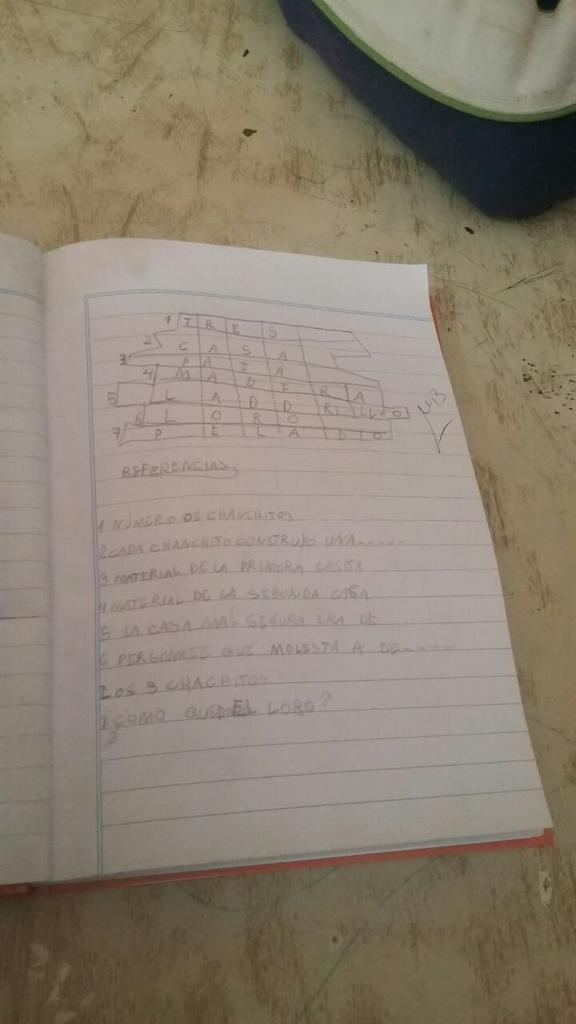 1 TRES
2 CASA
3 PAJA
4 MADERA
5 LADDRILLO
6 LORO
7 PELADO
REFERENCIAS
1 NÚMERO DE CHANCHITOS
2 CADA CHANCHITO CONSTRUYO UNA-----
3 MATERIAL DE LA PRIMERA CASITA
4 MATERIAL DE LA SEGUNDA CASA
5 LA CASA MÁS SEGURA ERA DE
6 PERSONAJE QUE MOLESTA A DE-----
LOS 3 CHACHITOS
7 ¿COMO QUEDO EL LOBO?